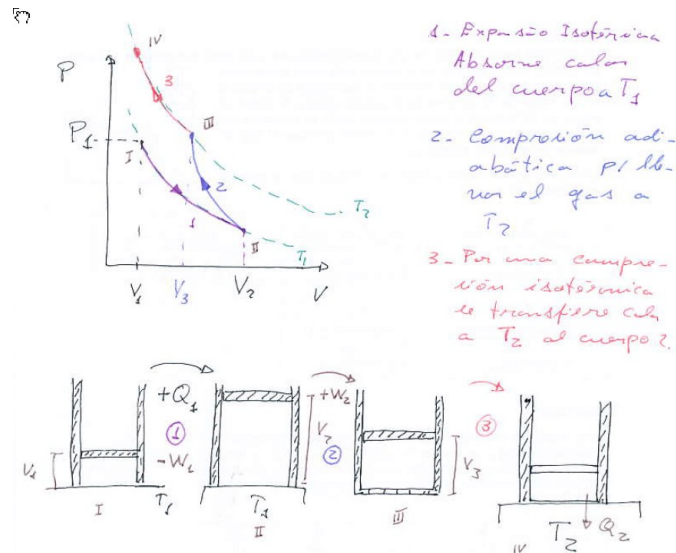 IV
P
3
III
P₁
I
2
1
T₂
II
T₁
V₁ V₃ V₂ V
1- Expansão Isotérmica
Absorve calor
del cuerpo a T₁
2- Compresión adi-
abática p/ lle-
var el gas a
T₂
3- Por una compre-
sión isotérmica
se transfiere calor
a T₂ al cuerpo 2.
+Q₁ +W₂
1 V₂ 2 3
V₁ -W₁ V₃
I T₁ T₁ II III T₂ Q₂
IV